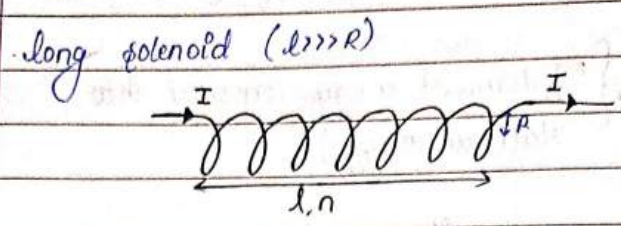 .long solenoid (l>>>R)
I I
R
l,n